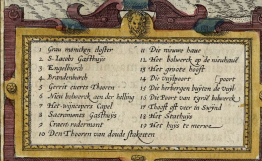 1 Grau moncken closter
2 S. Jacobs Gasthuys
3 Engelburch
4 Brandenburch
5 Gerrit rivers Thooren
6 Nieu bolwerck aen der helling
7 Het wijncopers Capel
8 Sacraments Gasthuys
9 Cruern rondermont
10 Den Thooren van doude
11 Die nieuwe have
12 Het bolwerck op de nieuhave
13 Het groote hooft
14 Die vuijlpoort
15 Die herbergen buijten de vuijl poort
16 Die Poort van
17 Thooft oft veer in
18 Het Stathuijs
19 Het huijs te merwe